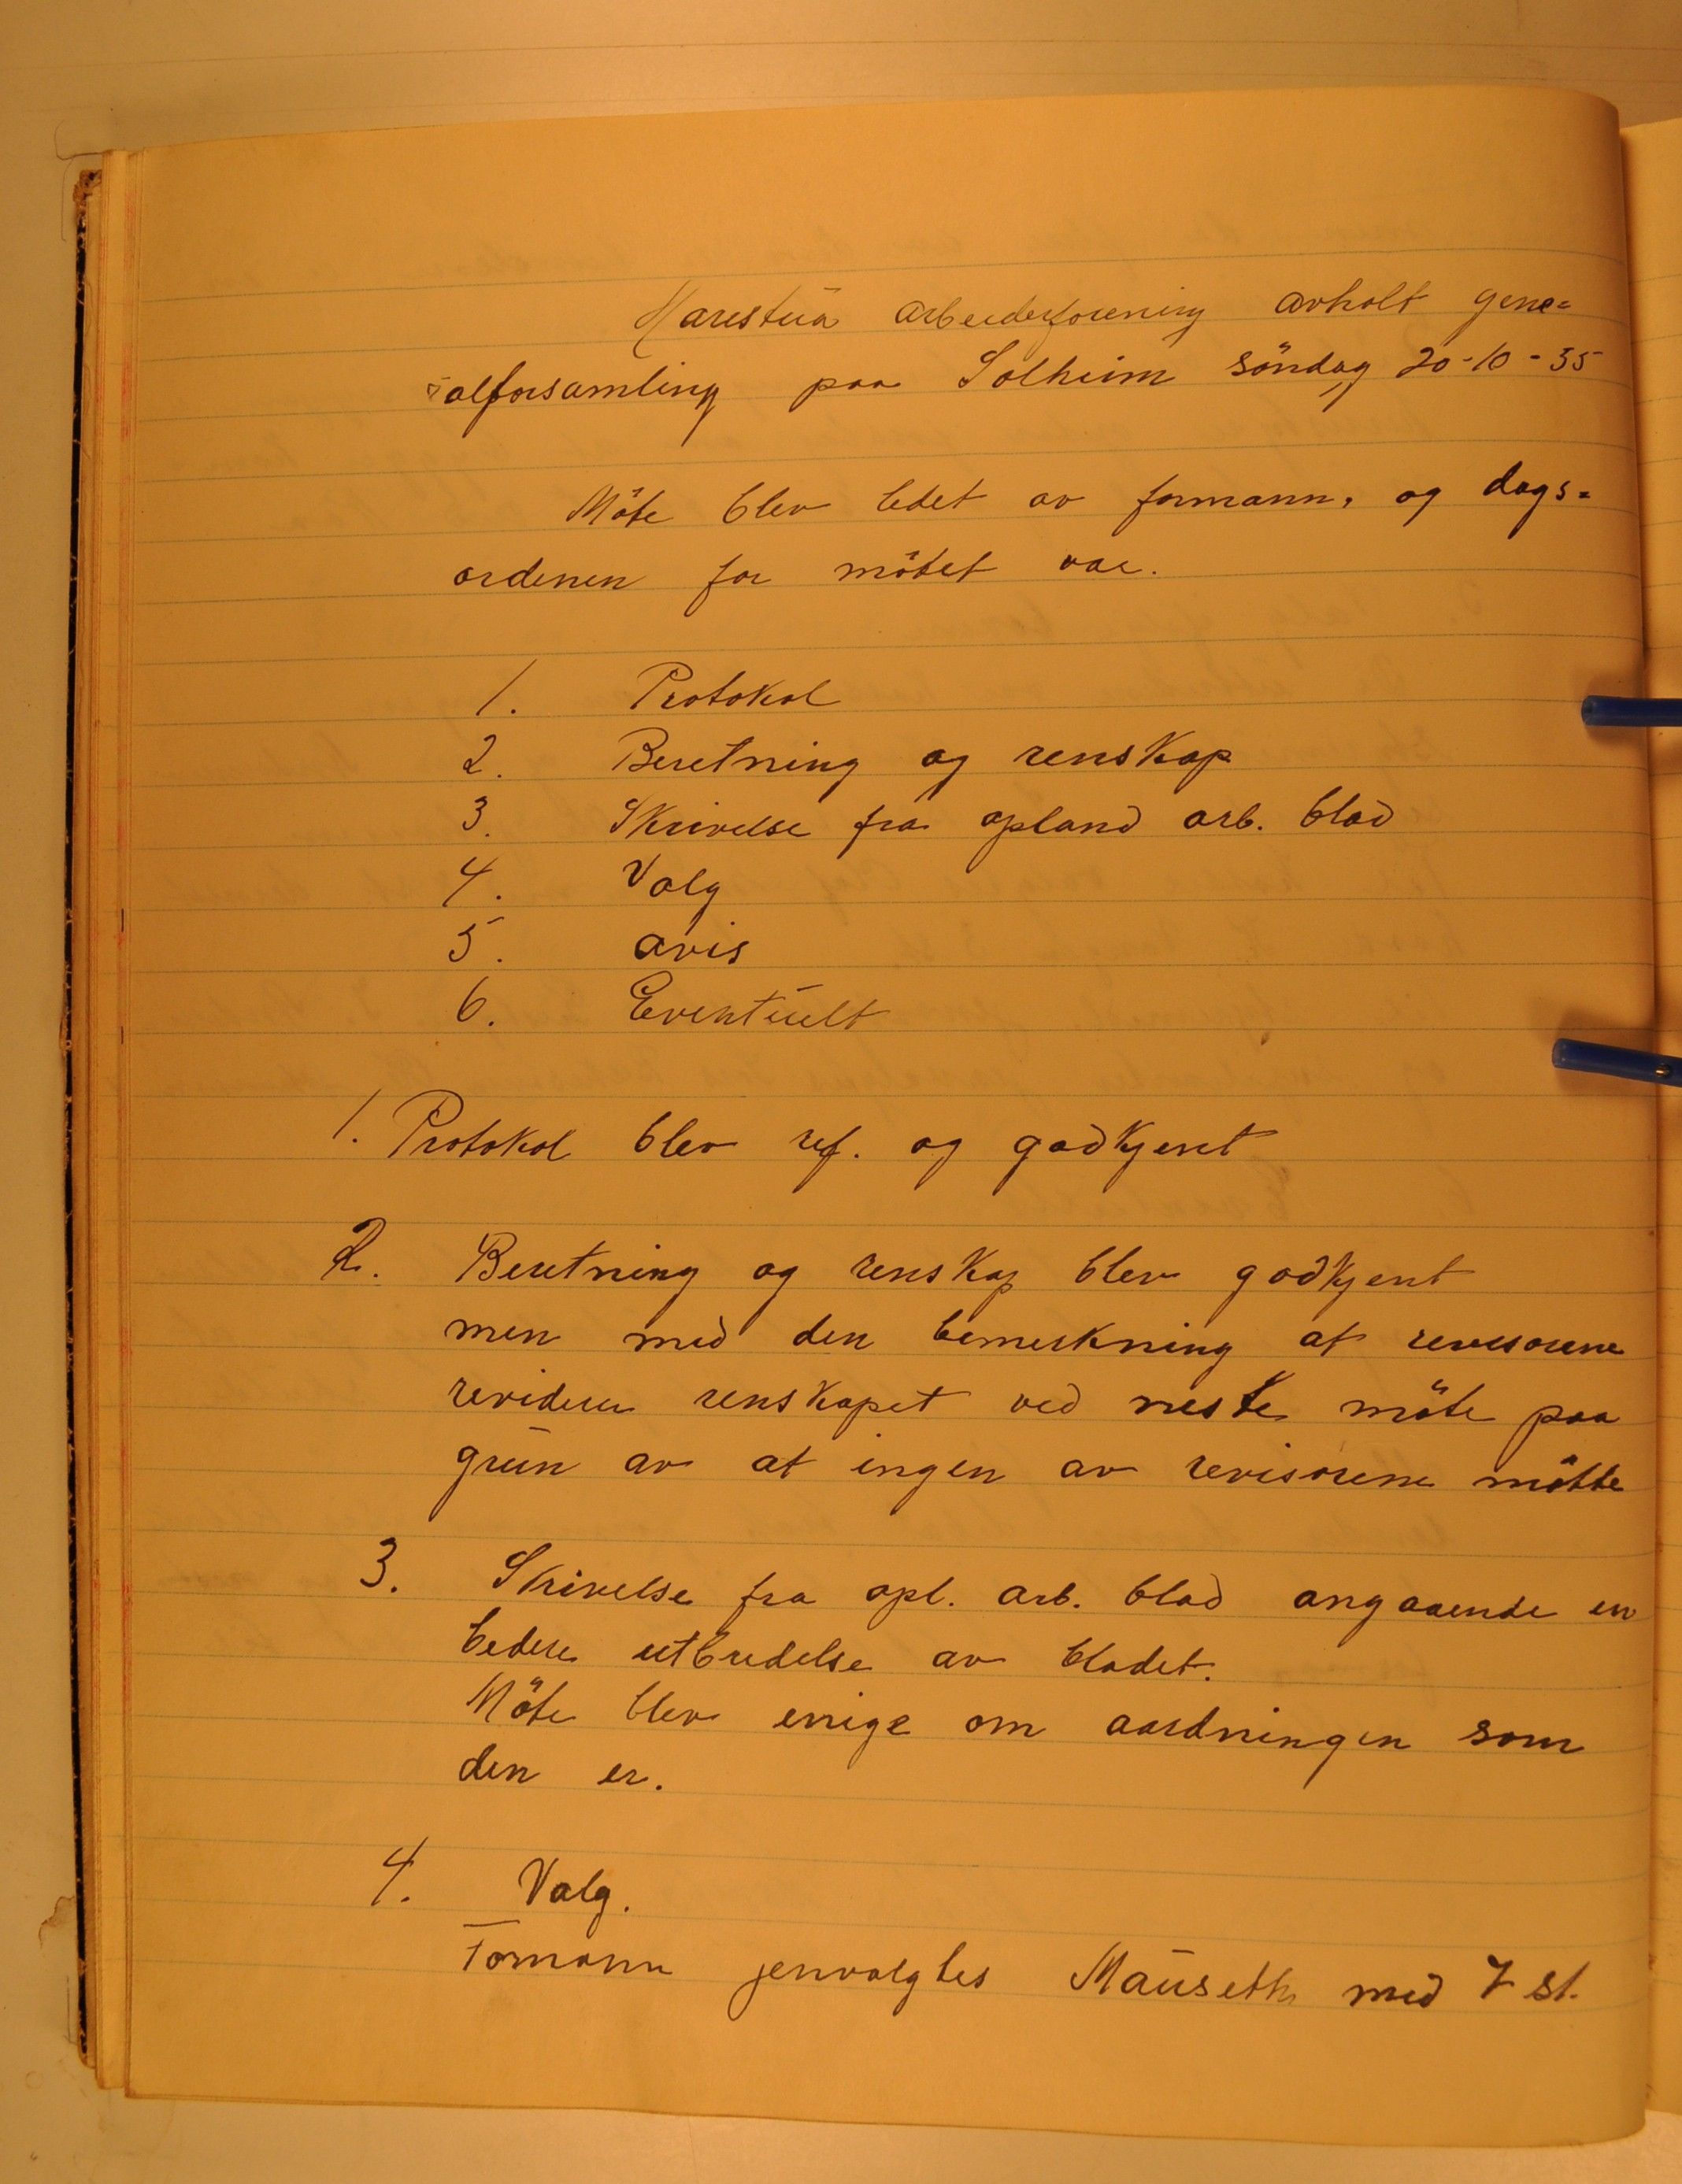 Harestua arbeiderforening avholt gene=
ralforsamling paa Solheim söndag 20-10-35
Möte blev ledet av formann, og dags=
ordenen for mötet var.
1. Protokol
2. Beretning og renskap
3. Skrivelse fra opland arb. blad
4. Valg
5. avis
6. Eventuelt
1. Protokol blev ref. og godkjent
2. Beretning og renskap blev godkjent
men med den bemerkning at revisorene
reviderer renskapet ved neste möte paa
grun av at ingen av revisorene mötte
3. Skrivelse fra opl. arb. blad angaaende en
bedere utbredelse av bladet.
Möte blev enige om aardningen som
den er.
4. Valg.
Formann jenvalgtes Mauseth med 7 st.